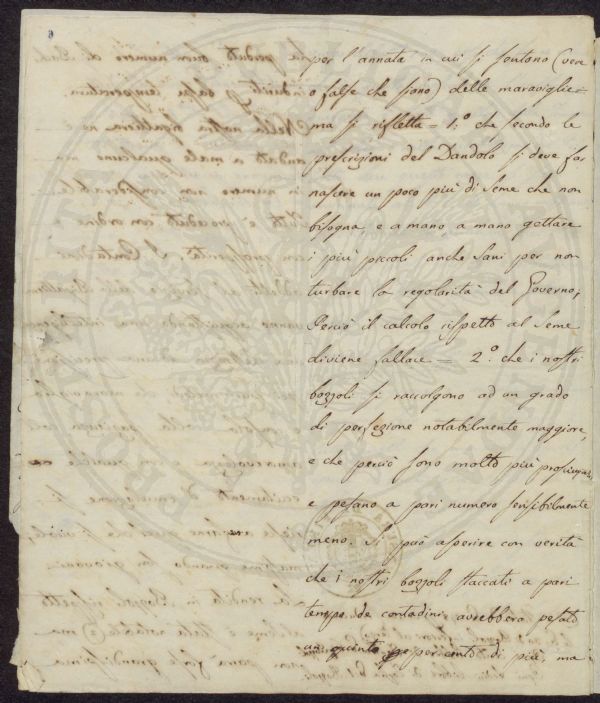 per l'annata in cui si sentono (vere
o false che siono) delle maraviglie =
ma si rifletta = 1.º che secondo le
prescrizioni del Dandolo si deve far
nascere un poco più di seme che non
bisogna e a mano a mano gettare
i più piccoli anche sani per non
turbare la regolarità del Governo;
Perciò il calcolo rispetto al seme
diviene fallace = 2.º che i nostri
bozzoli si raccolgono ad un grado
di perfezione notabilmente maggiore,
e che perciò sono molto più prosciugati,
e pesano a pari numero sensibilmente
meno. Si può asserire con verità
che i nostri bozzoli staccati a pari
tempo de contadini avrebbero pesato
un quinto per cento di più, ma